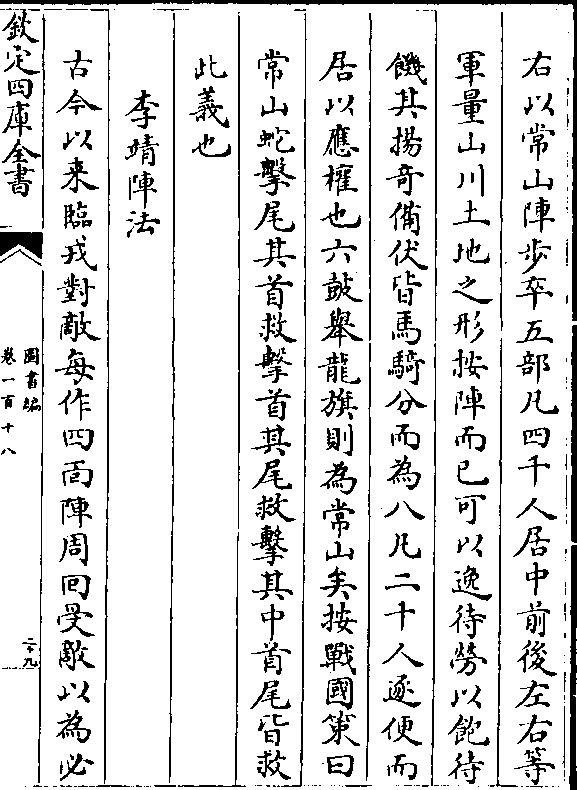 右以常山陣步卒五部凡四千人居中前後左右等
軍量山川土地之形按陣而已可以逸待勞以飽待
饑其揚奇備伏皆馬騎分而為八凡二十人逐便而
居以應權也六鼓舉龍旗則為常山矣按戰國策曰
常山蛇擊尾其首救擊首其尾救擊其中首尾皆救
此義也
李靖陣法
古今以来臨戎對敵每作四面陣周回受敵以為必
欽定四庫全書
圖書編
卷一百十八
二十九